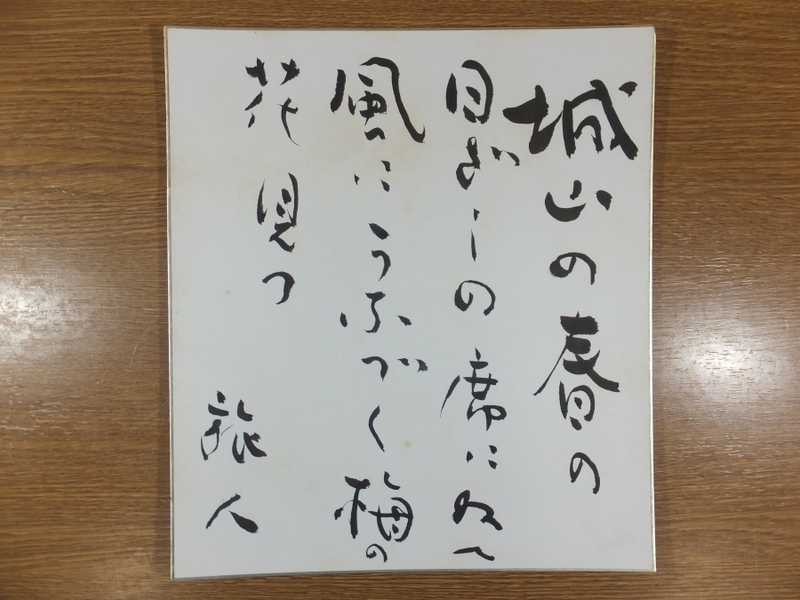 城山の春の
日ざしの席にゐて
風にうなづく梅の
花見つ
旅人